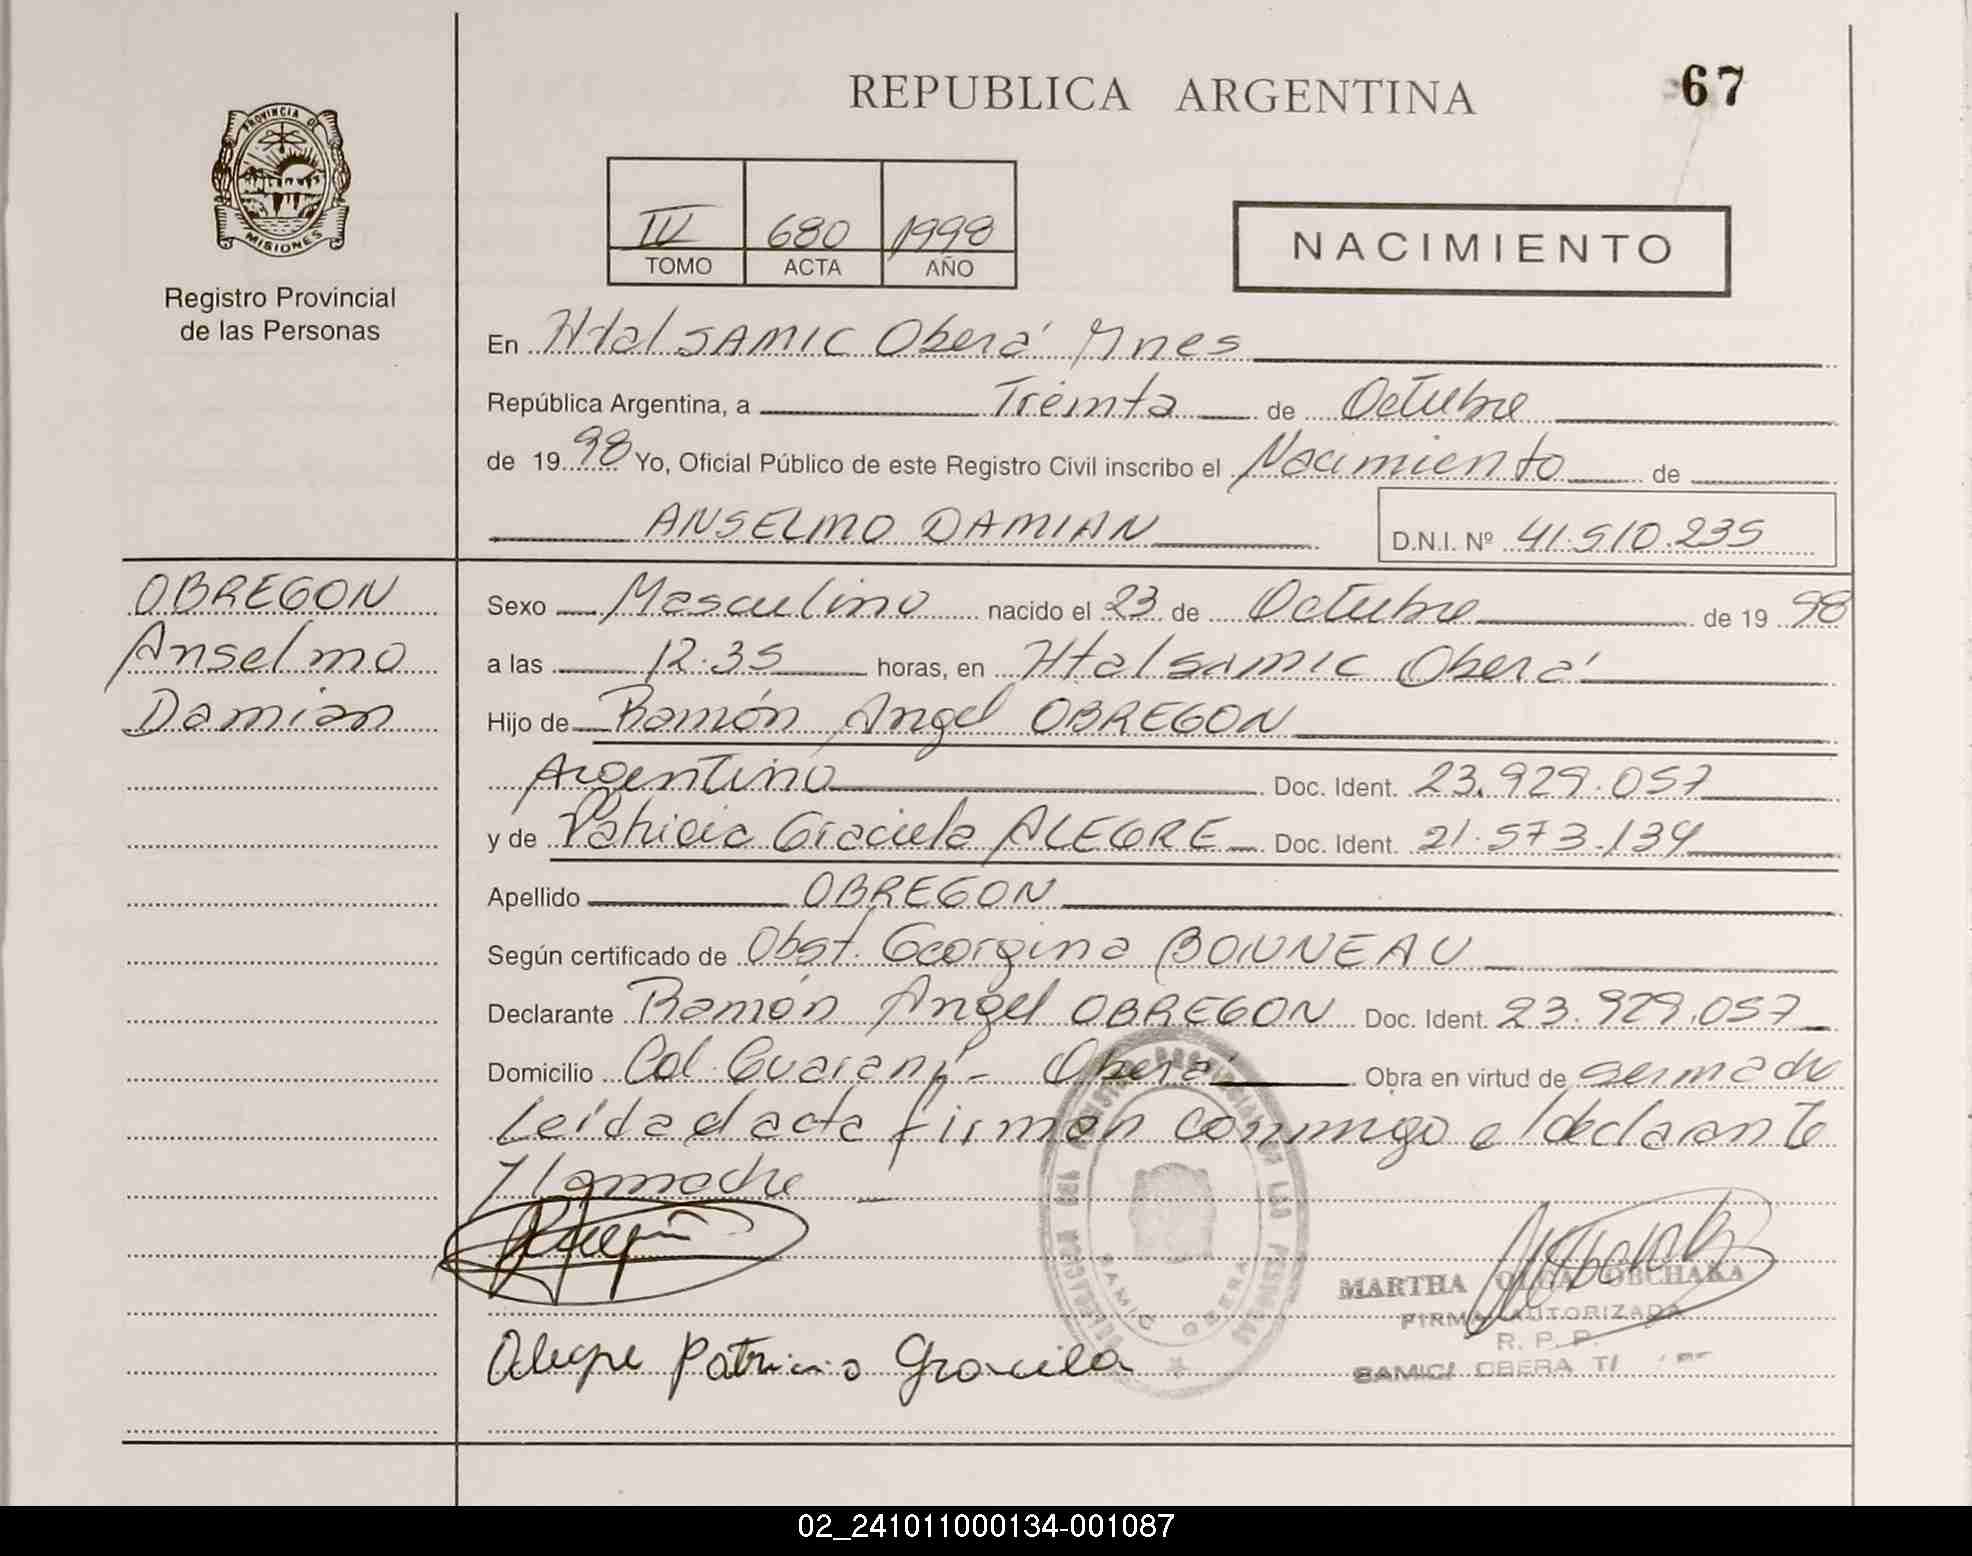 REPUBLICA ARGENTINA
67
PROVINCIA DE
MISIONES
Registro Provincial
de las Personas
IV 680 1998
TOMO ACTA AÑO
NACIMIENTO
En Htal SAMIC Oberá Mnes
República Argentina, a Treinta de Octubre
de 1998 Yo, Oficial Público de este Registro Civil inscribo el Nacimiento de
ANSELMO DAMIAN D.N.I. Nº 41.510.235
OBREGON
Anselmo
Damian
Sexo Masculino nacido el 23 de Octubre de 1998
a las 12.35 horas, en Htal samic Oberá
Hijo de Ramón Angel OBREGON
Argentino Doc. Ident. 23.929.057
y de Patricia Graciela ALEGRE Doc. Ident. 21.573.134
Apellido OBREGON
Según certificado de Obst. Georgina BOUNNEAU
Declarante Ramón Angel OBREGON Doc. Ident. 23.929.057
Domicilio Col. Guaraní - Oberá Obra en virtud de ser
Leída el acta firman conmigo el declarante
y la madre
Alegre Patricia Graciela
MARTHA OLGA
FIRMA AUTORIZADA
R. P. P.
SAMIC OBERA
SAMIC OBERA
02_241011000134-001087